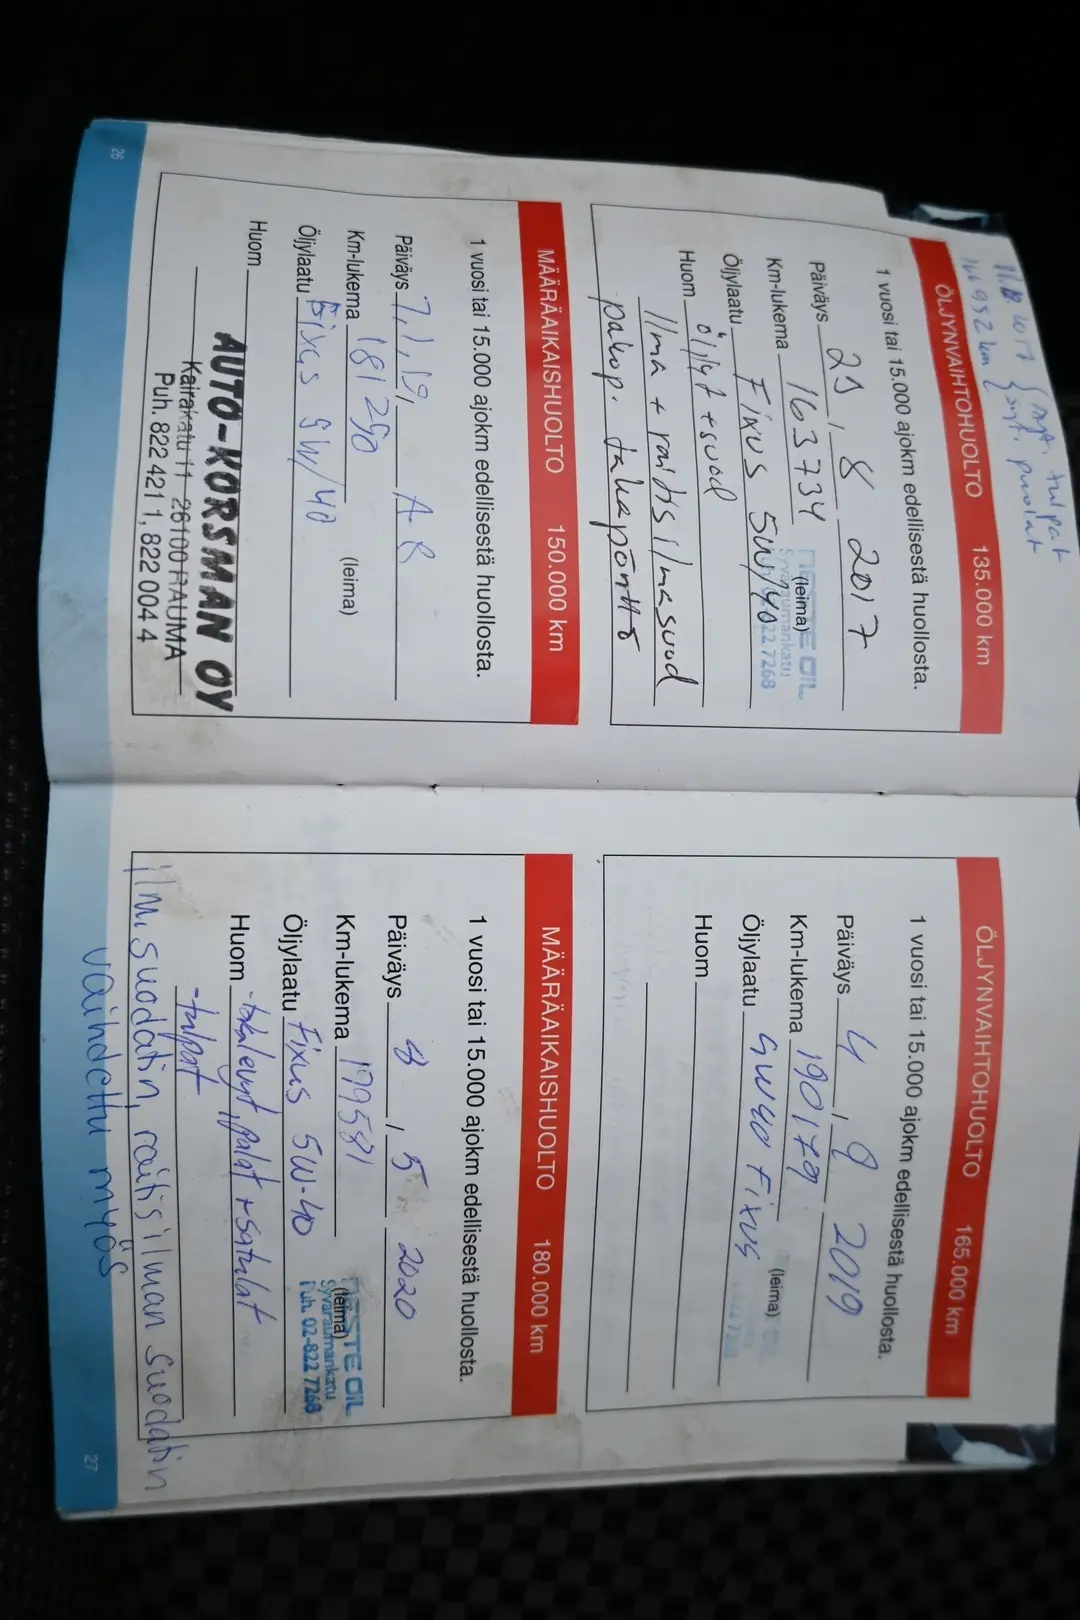 11.12.2017 { syt. tulpat
166952 km { syt. puolat
ÖLJYNVAIHTOHUOLTO 135.000 km
1 vuosi tai 15.000 ajokm edellisestä huollosta.
Päiväys 25 / 8 2017
Km-lukema 163734 (leima)
NESTE OIL
Syväraumankatu
Öljylaatu Fixus 5W/40
22 7268
Huom öljyt + suod
Ilma + raitis ilmasuod
pakop. takapönttö
MÄÄRÄAIKAISHUOLTO 150.000 km
1 vuosi tai 15.000 ajokm edellisestä huollosta.
Päiväys 7,1,19, A-R
Km-lukema 181250 (leima)
Öljylaatu Fixus 5W/40
Huom
AUTO-KORSMAN OY
Kairakatu 11 26100 RAUMA
Puh. 822 421 1, 822 004 4
26
ÖLJYNVAIHTOHUOLTO 165.000 km
1 vuosi tai 15.000 ajokm edellisestä huollosta.
Päiväys 4 / 9 2019
Km-lukema 190179 (leima)
Öljylaatu 5W40 Fixus
Huom
MÄÄRÄAIKAISHUOLTO 180.000 km
1 vuosi tai 15.000 ajokm edellisestä huollosta.
Päiväys 8 / 5 2020
Km-lukema 179581 (leima)
NESTE OIL
Syväraumankatu
Puh. 02-822 7268
Öljylaatu Fixus 5W-40
Huom -takalevyt, palat + satulat
-tulpat
ilm.suodatin, raitis ilman suodatin
vaihdettu myös
27